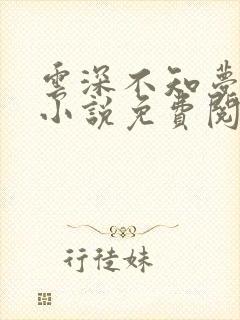 雲深不知夢
小說免費閱
行徒妹